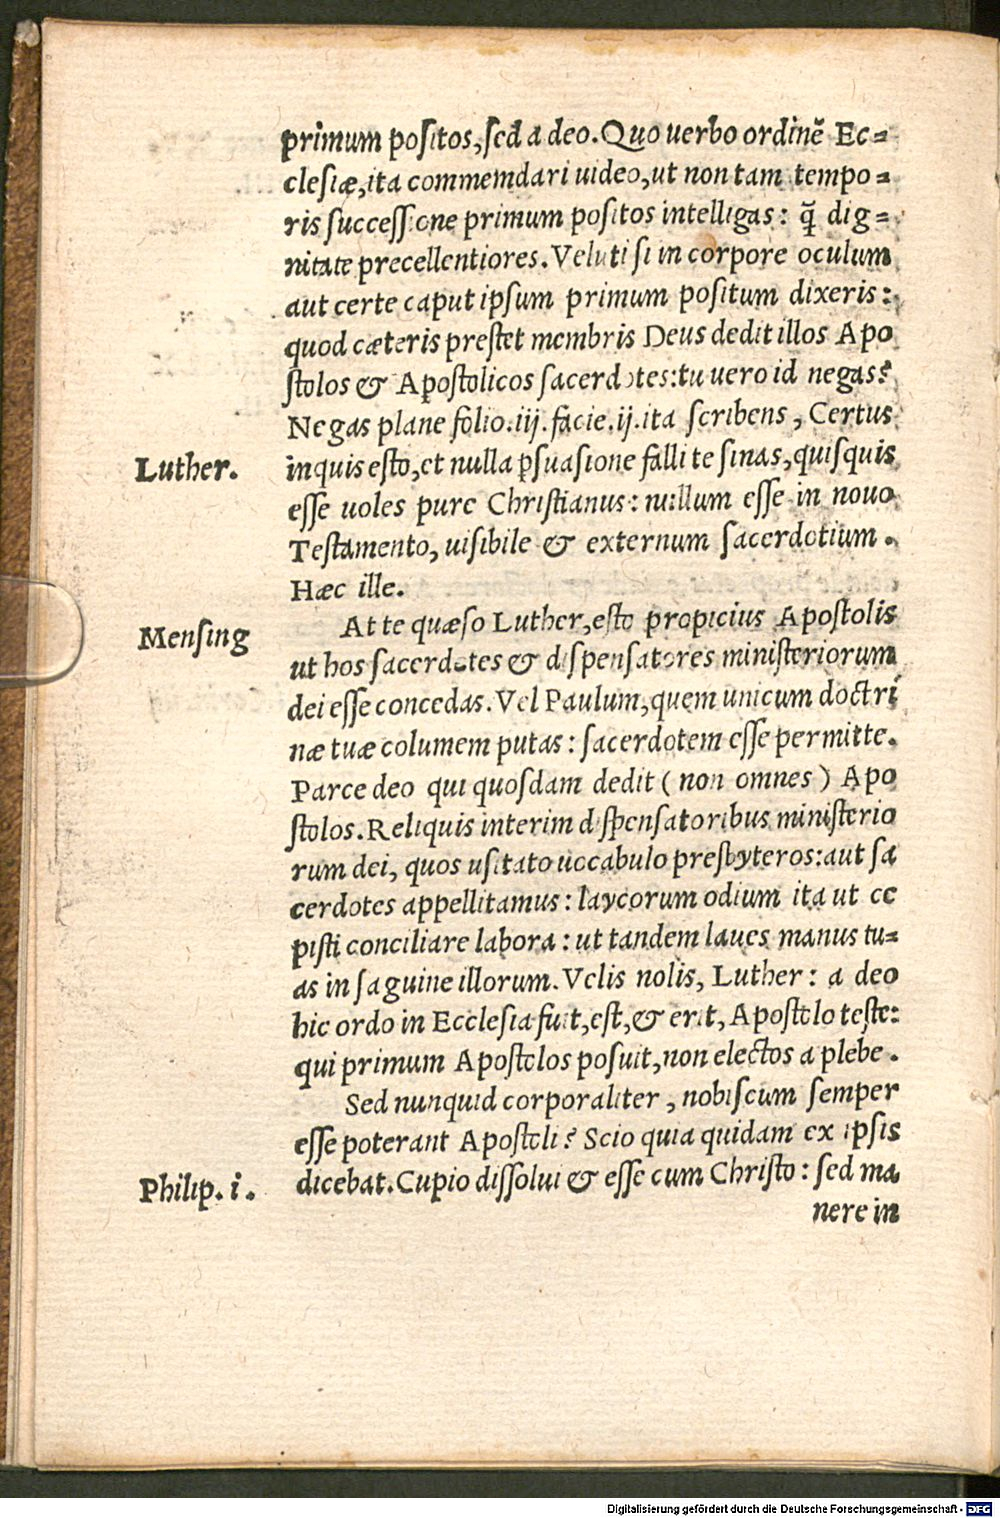 primum positos, sed a deo. Quo uerbo ordinē Ec=
clesiæ, ita commemdari uideo, ut non tam tempo=
ris successione primum positos intelligas: q̄ dig=
nitate precellentiores. Veluti si in corpore oculum
aut certe caput ipsum primum positum dixeris:
quod cæteris prestet membris Deus dedit illos Apo
stolos & Apostolicos sacerdotes: tu uero id negas?
Negas plane folio. iij. facie. ij. ita scribens, Certus
Luther. inquis esto, et nulla ꝑsuasione falli te sinas, quisquis
esse uoles pure Christianus: nullum esse in nouo
Testamento, uisibile & externum sacerdotium.
Hæc ille.
Mensing At te quæso Luther, esto propicius Apostolis
ut hos sacerdotes & dispensatores ministeriorum
dei esse concedas. Vel Paulum, quem unicum doctri
næ tuæ columem putas: sacerdotem esse permitte.
Parce deo qui quosdam dedit (non omnes) Apo
stolos. Reliquis interim dispensatoribus ministerio
rum dei, quos usitato uocabulo presbyteros: aut sa
cerdotes appellitamus: laycorum odium ita ut ce
pisti conciliare labora: ut tandem laues manus tu=
as in saguine illorum. Velis nolis, Luther: a deo
hic ordo in Ecclesia fuit, est, & erit, Apostolo teste:
qui primum Apostolos posuit, non electos a plebe.
Sed nunquid corporaliter, nobiscum semper
esse poterant Apostoli? Scio quia quidam ex ipsis
Philip. i. dicebat. Cupio dissolui & esse cum Christo: sed ma
nere in
Digitalisierung gefördert durch die Deutsche Forschungsgemeinschaft - DFG